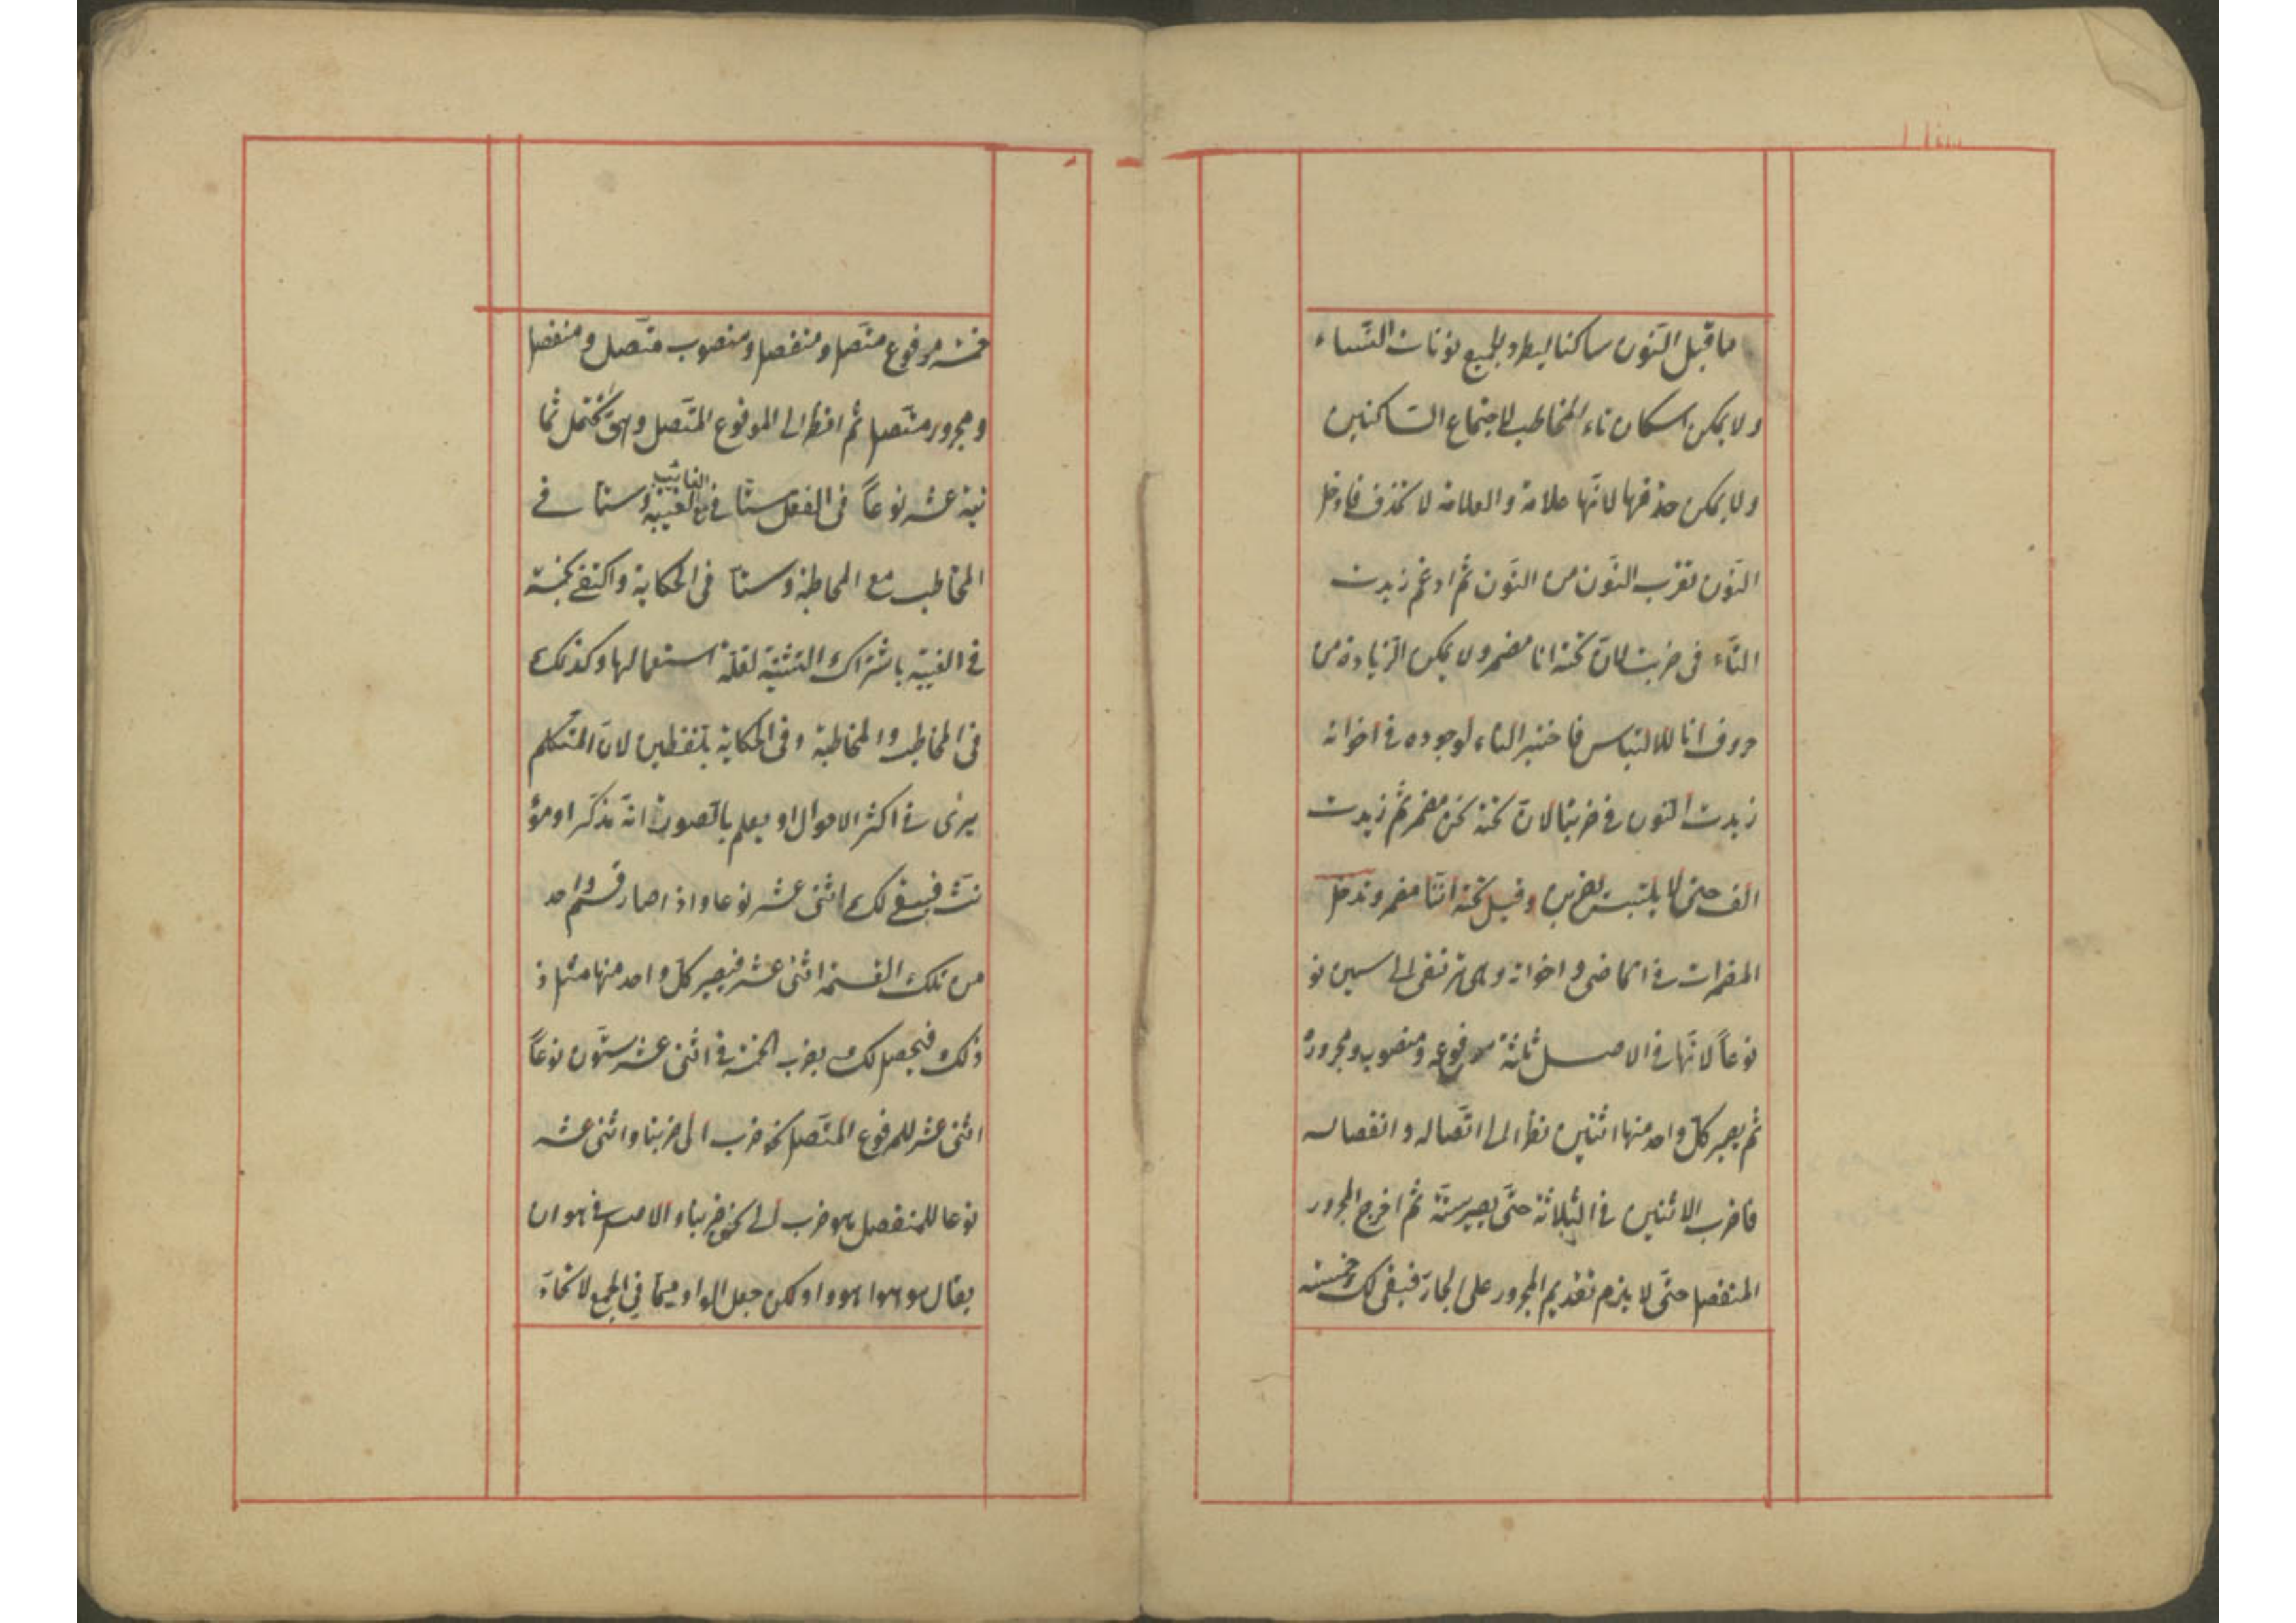 ما قبل النّون ساكنا ليطرد بجميع نونات النّساء
ولا يمكن اسكان تاء المخاطب لاجتماع السّاكنين
ولا يمكن حذفها لانّها علامة والعلامة لا تحذف فادخل
النّون لقرب النّون من النّون ثم ادغم زيدت
التّاء فى ضربت لانّ تحته انا مضمر ولا يمكن الزّيادة من
حروف انا للالتباس فاختير التاء لوجوده فى اخواته
زيدت النون فى ضربنا لانّ تحته نحن مضمر ثم زيدت
الف حتى لا يلتبس بضربن وقيل تحته انّنا مضمر وتدخل
المضمرات فى الماضى واخواته وهى ترتقى الى ستين نو
نوعاً لانّها فى الاصل ثلثة مرفوعه ومنصوب ومجرورة
ثم يصير كلّ واحد منها اثنين نظرا الى اتّصاله وانفصاله
فاضرب الاثنين فى الثلاثة حتّى يصير ستّة ثم اخرج المجرور
المنفصل حتّى لا يلزم تقديم المجرور على الجارّ فبقى لك خمسة
خمسة مرفوع متّصل ومنفصل ومنصوب متّصل ومنفصل
ومجرور متّصل ثم انظر الى المرفوع المتّصل وهى تحتمل ثما
نية عشر نوعاً فى العقل ستّا فى الغائب مع الغيبة وستا فى
المخاطب مع المخاطبة وستا فى الحكاية واكتفى بخمسة
فى الغيبة باشتراك التثنية لقلّة استعمالها وكذلك
فى المخاطب والمخاطبة وفى الحكاية بلفظين لانّ المتكلّم
يرى فى اكثر الاحوال او يعلم بالصوت انّه مذكّر او مؤ
نث فبقى لك اثنى عشر نوعا واذا صار قسم واحد
من تلك القسمة اثنى عشر فيصير كلّ واحد منها مثل ذ
ذلك فيحصل لك بضرب الخمسة فى اثنى عشر ستّون نوعاً
اثنى عشر للمرفوع المتّصل نحو ضرب الى ضربنا واثنى عشر
نوعا للمنفصل هو ضرب الى نحن ضربنا والاصل فى هو ان
يقال هو هوا هووا ولكن جعل الواو ميما فى الجمع لاتحاد